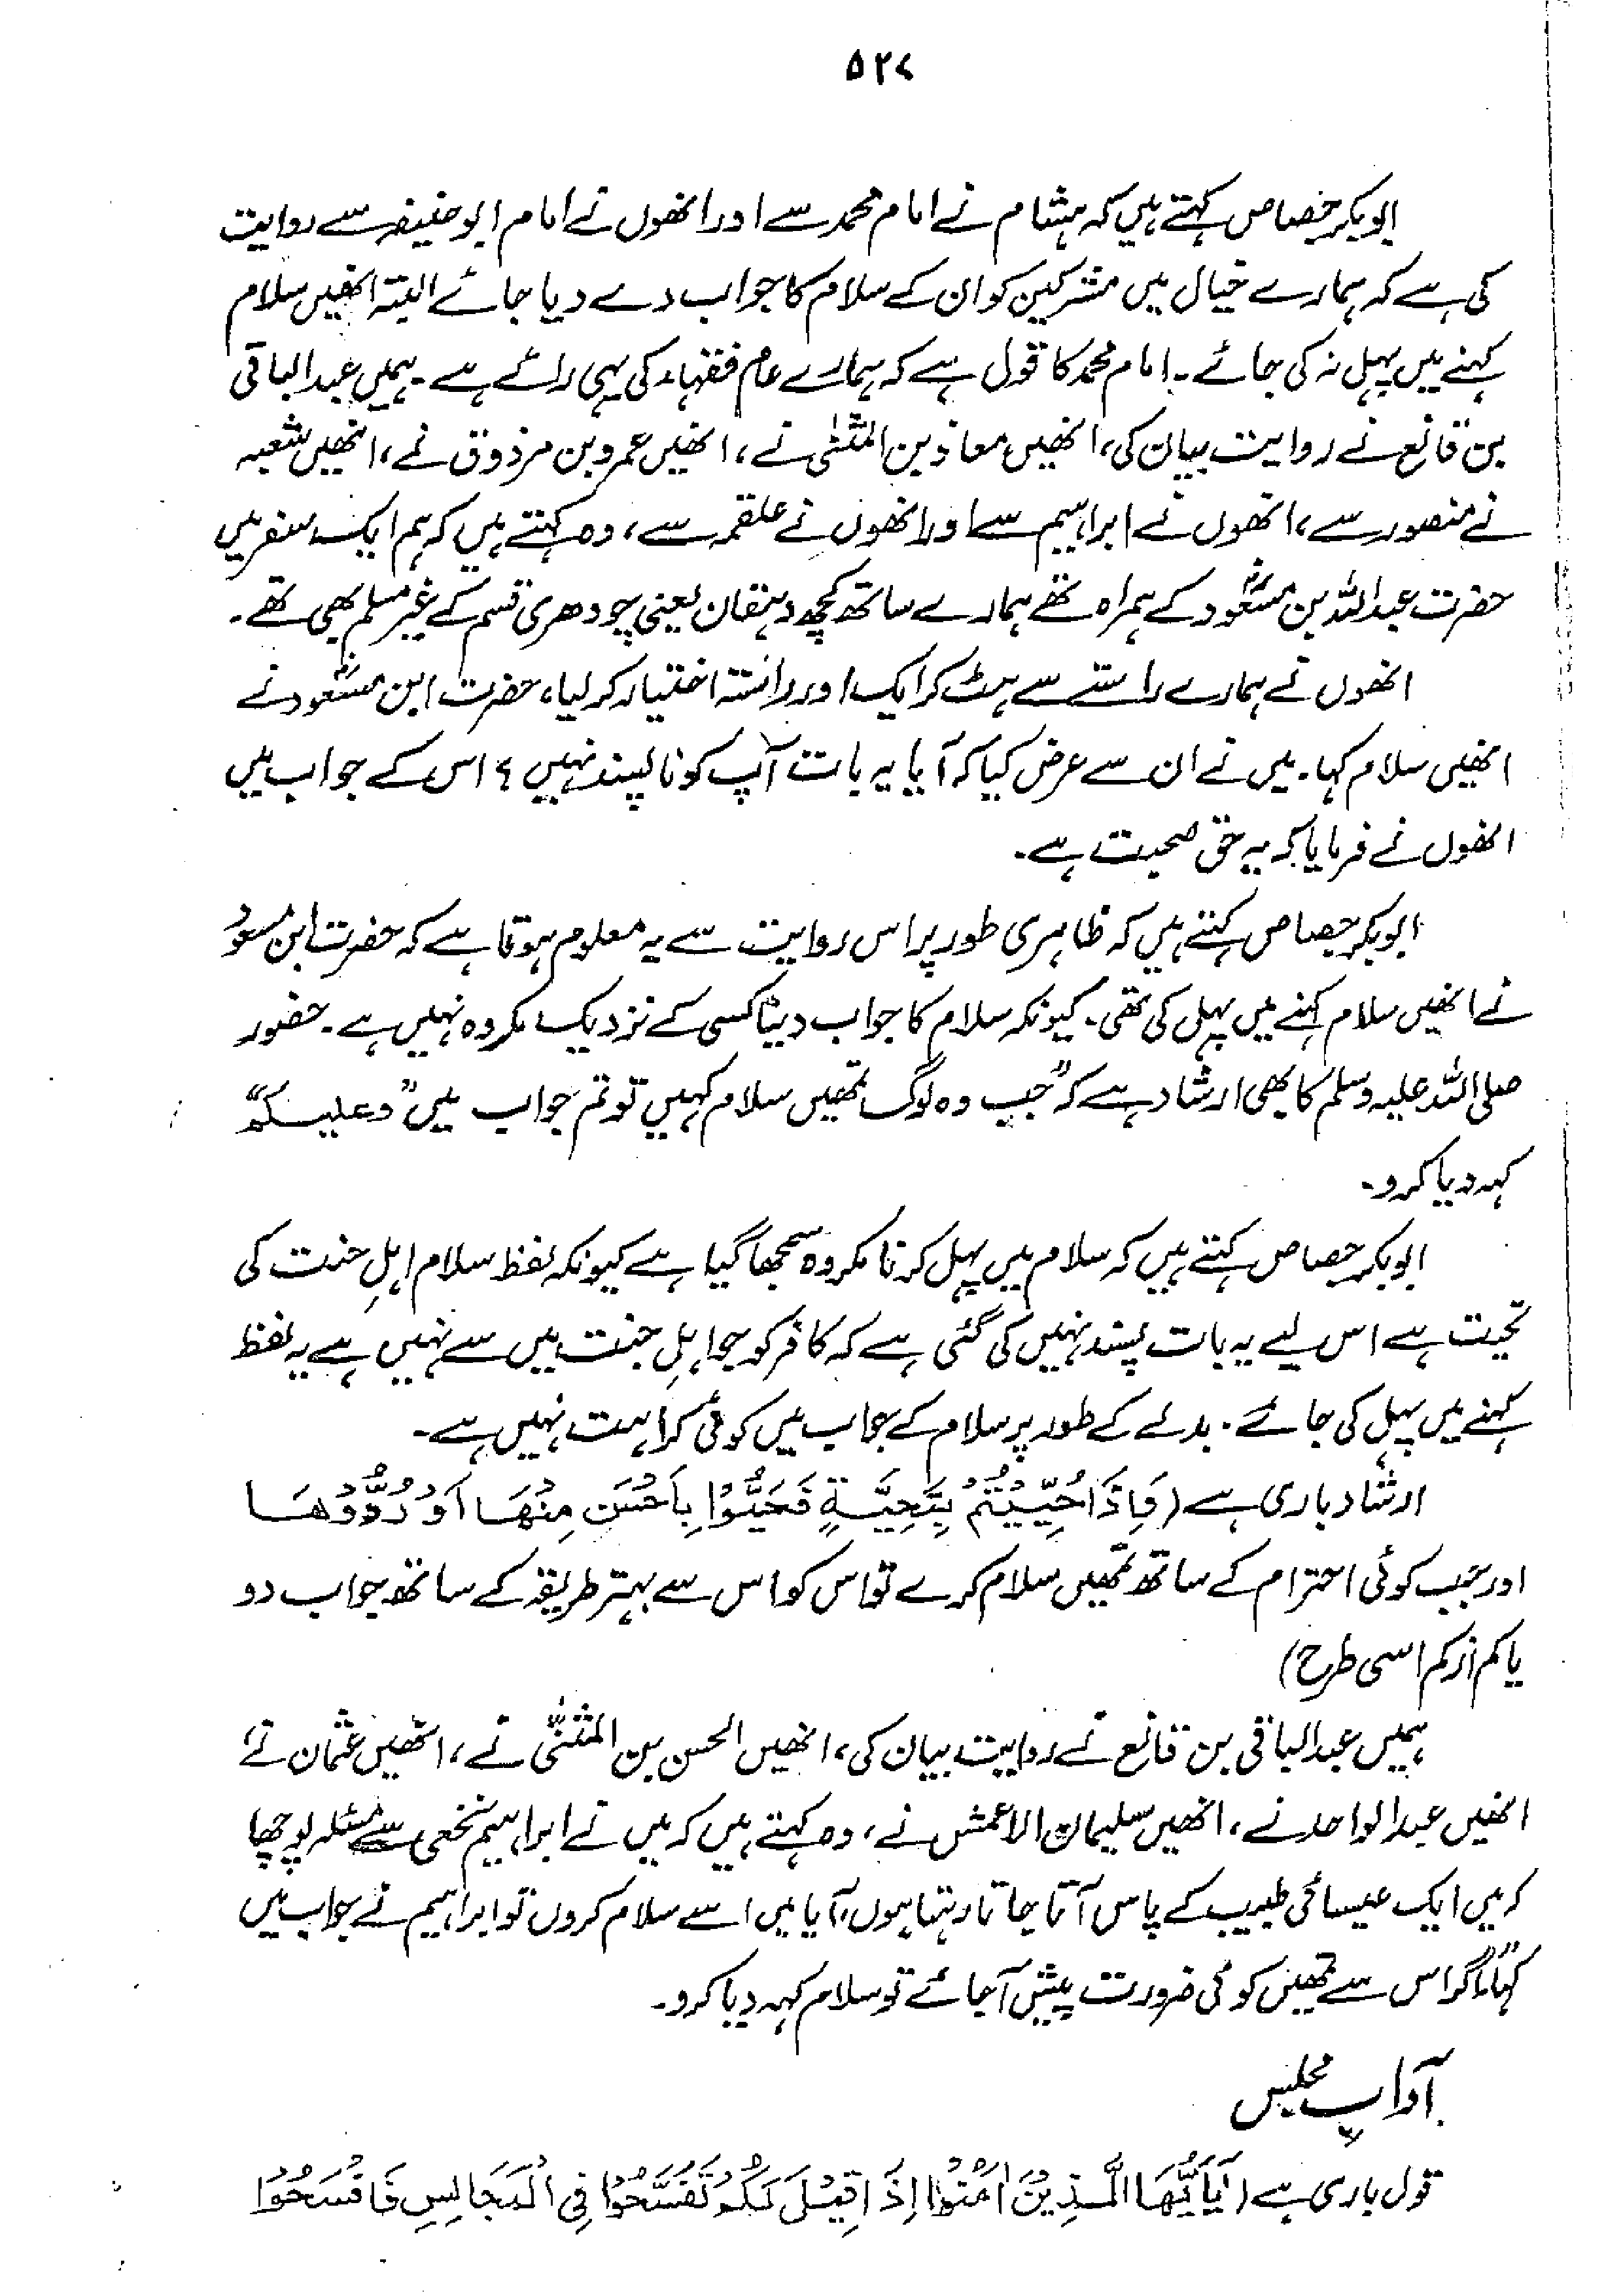 ۵۲۷
ابوبکر جصاص کہتے ہیں کہ ہشام نے امام محمد سے اور انھوں نے امام ابو حنیفہ سے روایت
کی ہے کہ ہمارے خیال میں مشرکین کو ان کے سلام کا جواب دے دیا جائے البتہ انھیں سلام
کہنے میں پہل نہ کی جائے۔ امام محمد کا قول ہے کہ ہمارے عام فقہاء کی یہی رائے ہے۔ ہمیں عبدالباقی
بن قانع نے روایت بیان کی، انھیں معاذ بن المثنیٰ نے، انھیں عمرو بن مرزوق نے، انھیں شعبہ
نے منصور سے، انھوں نے ابراہیم سے اور انھوں نے علقمہ سے، وہ کہتے ہیں کہ ہم ایک سفر میں
حضرت عبداللہ بن مسعودؓ کے ہمراہ تھے ہمارے ساتھ کچھ دہقان یعنی چودھری قسم کے غیر مسلم بھی تھے۔
انھوں نے ہمارے راستے سے ہٹ کر ایک اور راستہ اختیار کر لیا، حضرت ابن مسعودؓ نے
انھیں سلام کہا۔ میں نے ان سے عرض کیا کہ آیا یہ بات آپ کو ناپسند نہیں؟ اس کے جواب میں
انھوں نے فرمایا کہ یہ حق صحبت ہے۔
ابوبکر جصاص کہتے ہیں کہ ظاہری طور پر اس روایت سے یہ معلوم ہوتا ہے کہ حضرت ابن مسعودؓ
نے انھیں سلام کہنے میں پہل کی تھی۔ کیونکہ سلام کا جواب دینا کسی کے نزدیک مکروہ نہیں ہے۔ حضور
صلی اللہ علیہ وسلم کا بھی ارشاد ہے کہ "جب وہ لوگ تمھیں سلام کہیں تو تم جواب میں "وعلیکم"
کہہ دیا کرو۔
ابوبکر جصاص کہتے ہیں کہ سلام میں پہل کرنا مکروہ سمجھا گیا ہے کیونکہ لفظ سلام اہلِ جنت کی
تحیت ہے اس لیے یہ بات پسند نہیں کی گئی ہے کہ کافر کو جو اہلِ جنت میں سے نہیں ہے یہ لفظ
کہنے میں پہل کی جائے۔ بدلے کے طور پر سلام کے جواب میں کوئی کراہت نہیں ہے۔
ارشاد باری ہے (فَاِذَا حُیِّیْتُمْ بِتَحِیَّۃٍ فَحَیُّوْا بِاَحْسَنَ مِنْھَا اَوْ رُدُّوْھَا
اور جب کوئی احترام کے ساتھ تمھیں سلام کرے تو اس کو اس سے بہتر طریقہ کے ساتھ جواب دو
یا کم از کم اسی طرح)
ہمیں عبدالباقی بن قانع نے روایت بیان کی، انھیں الحسن بن المثنّٰی نے، انھیں عثمان نے
انھیں عبدالواحد نے، انھیں سلیمان الاعمش نے، وہ کہتے ہیں کہ میں نے ابراہیم نخعی سے مسئلہ پوچھا
کہ میں ایک عیسائی طبیب کے پاس آتا جاتا رہتا ہوں، آیا میں اسے سلام کروں تو ابراہیم نے جواب میں
کہا "اگر اس سے تمھیں کوئی ضرورت پیش آجائے تو سلام کہہ دیا کرو۔
آدابِ مجلس
قول باری ہے (یٰاَیُّھَا الَّذِیْنَ اٰمَنُوْا اِذَا قِیْلَ لَکُمْ تَفَسَّحُوْا فِی الْمَجَالِسِ فَافْسَحُوْا